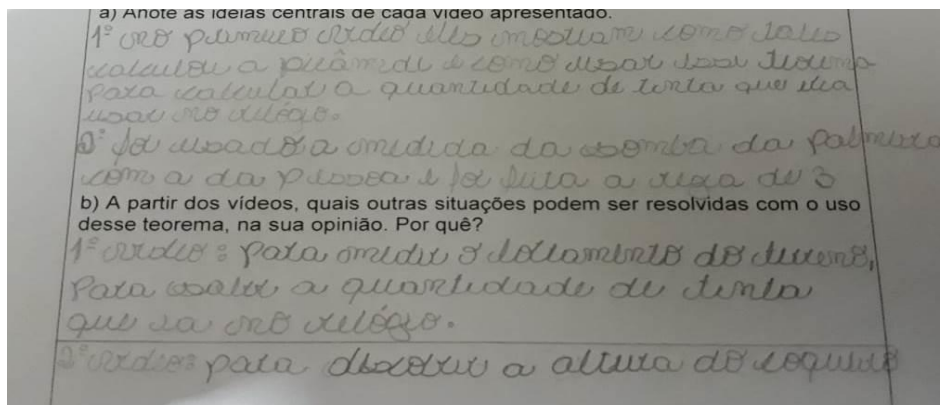 a) Anote as ideias centrais de cada vídeo apresentado.
1º no primeiro vídeo eles mostram como tales
calculou a pirâmide e como usar esse teorema
para calcular a quantidade de tinta que ela
usar no relógio.
2º foi usado a medida da sombra da palmeira
com a da pessoa e foi feita a regra de 3
b) A partir dos vídeos, quais outras situações podem ser resolvidas com o uso
desse teorema, na sua opinião. Por quê?
1º vídeo: para medir o loteamento do terreno,
Para saber a quantidade de tinta
que ia no relógio.
2º vídeo: para descobrir a altura do coqueiro